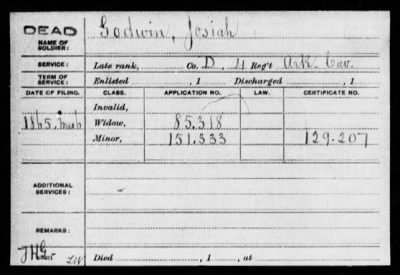 DEAD Godwin, Josiah
NAME OF SOLDIER:
SERVICE: Late rank, Co. D, 4 Reg't Ark. Cav.
TERM OF SERVICE: Enlisted , 1 Discharged , 1
DATE OF FILING. CLASS. APPLICATION NO. LAW. CERTIFICATE NO.
Invalid,
1865, Widow, 85.318
Minor, 151.333 129.207
ADDITIONAL SERVICES:
REMARKS:
Died , 1 , at